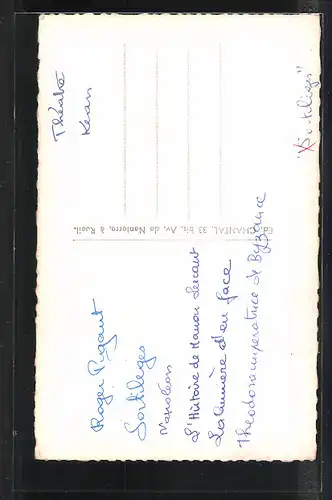 Théatre
Kean
"Sortilèges"
Ed. CHANTAL, 33 bis, Av. de Nanterre, à Rueil.
Roger Pigaut
Sortilèges
Napoléon
L'Histoire de Manon Lescaut
La lumière d'en face
Theodora impératrice de Byzance